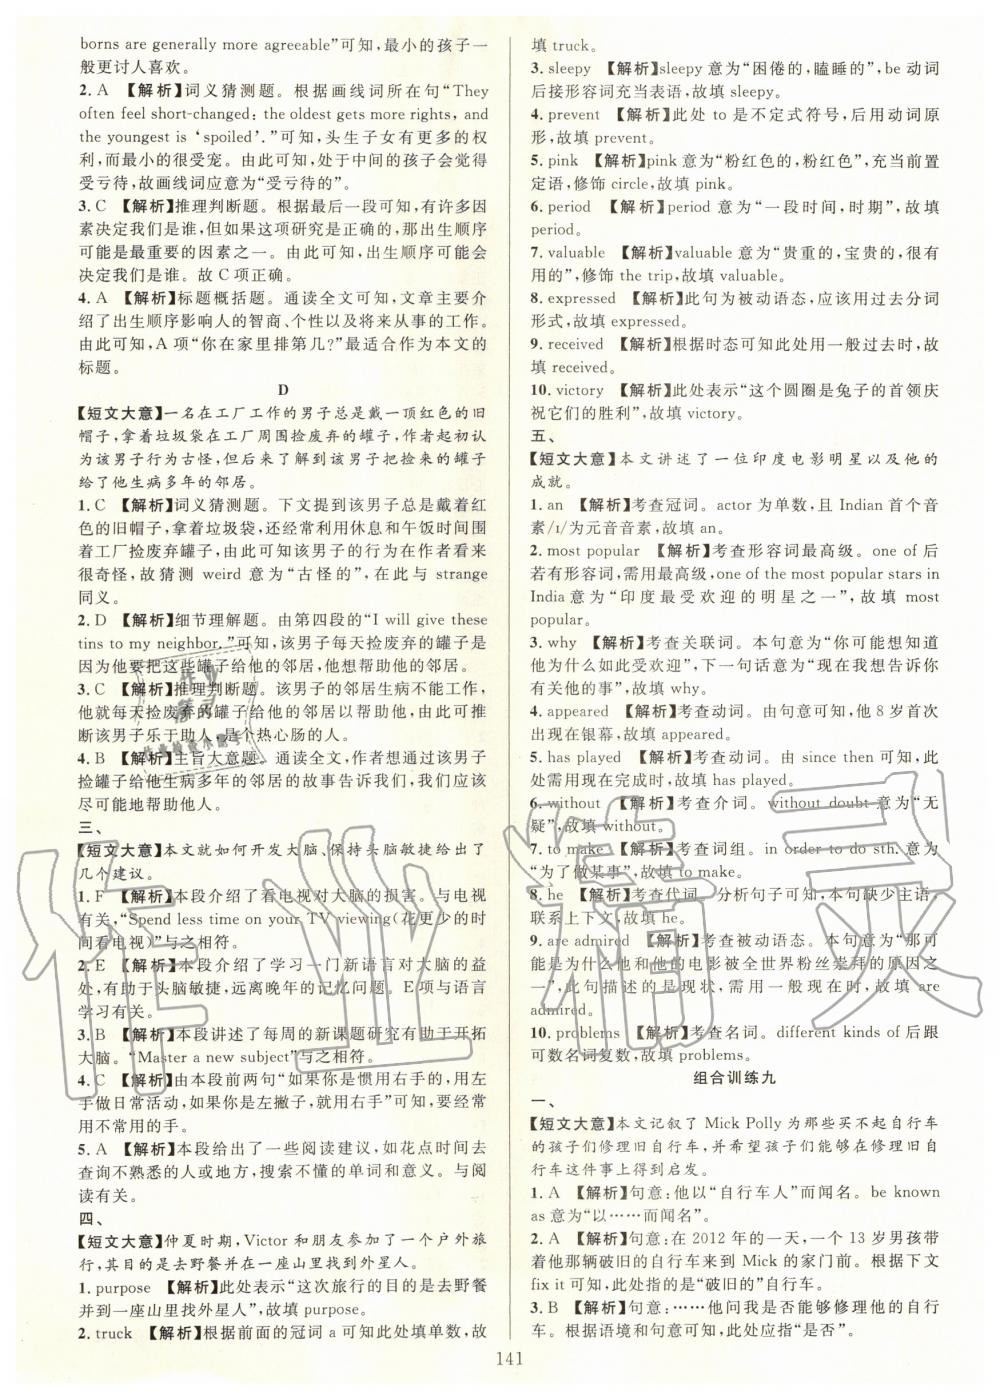 borns are generally more agreeable”可知,最小的孩子一
般更讨人喜欢。
2. A 【解析】词义猜测题。根据画线词所在句“They
often feel short-changed: the oldest gets more rights, and
the youngest is ‘spoiled’.”可知,头生子女有更多的权
利,而最小的很受宠。由此可知,处于中间的孩子会觉得
受亏待,故画线词应意为“受亏待的”。
3. C 【解析】推理判断题。根据最后一段可知,有许多因
素决定我们是谁,但如果这项研究是正确的,那出生顺序
可能是最重要的因素之一。由此可知,出生顺序可能会
决定我们是谁。故C项正确。
4. A 【解析】标题概括题。通读全文可知,文章主要介
绍了出生顺序影响人的智商、个性以及将来从事的工作。
由此可知,A 项“你在家里排第几?”最适合作为本文的
标题。
D
【短文大意】一名在工厂工作的男子总是戴一顶红色的旧
帽子,拿着垃圾袋在工厂周围捡废弃的罐子,作者起初认
为该男子行为古怪,但后来了解到该男子把捡来的罐子
给了他生病多年的邻居。
1. C 【解析】词义猜测题。下文提到该男子总是戴着红
色的旧帽子,拿着垃圾袋,还经常利用休息和午饭时间围
着工厂捡废弃罐子,由此可知该男子的行为在作者看来
很奇怪,故猜测 weird 意为“古怪的”,在此与 strange
同义。
2. D 【解析】细节理解题。由第四段的“I will give these
tins to my neighbor.”可知,该男子每天捡废弃的罐子是
因为他要把这些罐子给他的邻居,他想帮助他的邻居。
3. C 【解析】推理判断题。该男子的邻居生病不能工作,
他就每天捡废弃的罐子给他的邻居以帮助他,由此可推
断该男子乐于助人,是个热心肠的人。
4. B 【解析】主旨大意题。通读全文,作者想通过该男子
捡罐子给他生病多年的邻居的故事告诉我们,我们应该
尽可能地帮助他人。
三、
【短文大意】本文就如何开发大脑、保持头脑敏捷给出了
几个建议。
1. F 【解析】本段介绍了看电视对大脑的损害。与电视
有关,“Spend less time on your TV viewing(花更少的时
间看电视)”与之相符。
2. E 【解析】本段介绍了学习一门新语言对大脑的益
处,有助于头脑敏捷,远离晚年的记忆问题。E项与语言
学习有关。
3. B 【解析】本段讲述了每周的新课题研究有助于开拓
大脑。“Master a new subject”与之相符。
4. C 【解析】由本段前两句“如果你惯用右手的手,用左
手做日常活动,如果你是左撇子,就用右手”可知,要经常
用不常用的手。
5. A 【解析】本段给出了一些阅读建议,如花点时间去
查询不熟悉的人或地方,搜索不懂的单词和意义。与阅
读有关。
四、
【短文大意】仲夏时期,Victor 和朋友参加了一个户外旅
行,其目的是去野餐并在一座山里找外星人。
1. purpose 【解析】此处表示“这次旅行的目的是去野餐
并到一座山里找外星人”,故填 purpose。
2. truck 【解析】根据前面的冠词 a可知此处填单数,故
填 truck。
3. sleepy 【解析】sleepy 意为“困倦的,瞌睡的”,be 动词
后接形容词充当表语,故填 sleepy。
4. prevent 【解析】此处 to 是不定式符号,后用动词原
形,故填 prevent。
5. pink 【解析】pink 意为“粉红色的,粉红色”,充当前置
定语,修饰 circle,故填 pink。
6. period 【解析】period 意为“一段时间,时期”,故填
period。
7. valuable 【解析】valuable 意为“贵重的,宝贵的,很有
用的”,修饰 the trip,故填 valuable。
8. expressed 【解析】此句为被动语态,应该用过去分词
形式,故填 expressed。
9. received 【解析】根据时态可知此处用一般过去时,故
填 received。
10. victory 【解析】此处表示“这个圆圈是兔子的首领庆
祝它们的胜利”,故填 victory。
五、
【短文大意】本文讲述了一位印度电影明星以及他的
成就。
1. an 【解析】考查冠词。actor 为单数,且 Indian 首个音
素/ɪ/为元音音素,故填 an。
2. most popular 【解析】考查形容词最高级。one of 后
若有形容词,需用最高级,one of the most popular stars in
India 意为“印度最受欢迎的明星之一”,故填 most
popular。
3. why 【解析】考查关联词。本句意为“你可能想知道
他为什么如此受欢迎”,下一句话意为“现在我想告诉你
有关他的事”,故填 why。
4. appeared 【解析】考查动词。由句意可知,他 8 岁首次
出现在银幕,故填 appeared。
5. has played 【解析】考查动词。由 since then 可知,此
处需用现在完成时,故填 has played。
6. without 【解析】考查介词。without doubt 意为“无
疑”,故填 without。
7. to make 【解析】考查词组。in order to do sth. 意为
“为了做某事”,故填 to make。
8. he 【解析】考查代词。分析句子可知,本句缺少主语,
联系上下文,故填 he。
9. are admired 【解析】考查被动语态。本句意为“那可
能是为什么他和他的电影被全世界粉丝崇拜的原因之
一”,此句描述的是现状,需用一般现在时,故填 are
admired。
10. problems 【解析】考查名词。different kinds of 后跟
可数名词复数,故填 problems。
组合训练九
一、
【短文大意】本文记叙了 Mick Polly 为那些买不起自行车
的孩子们修理旧自行车,并希望孩子们能够在修理旧自
行车这件事上得到启发。
1. A 【解析】句意:他以“自行车人”而闻名。be known
as 意为“以……而闻名”。
2. A 【解析】句意:在 2012 年的一天,一个 13 岁男孩带
着他那辆破旧的自行车来到 Mick 的家门前。根据下文
fix it 可知,此处指的是“破旧的”自行车。
3. B 【解析】句意:……他问我是否能够修理他的自行
车。根据语境和句意可知,此处应指“是否”。
141
作业精灵